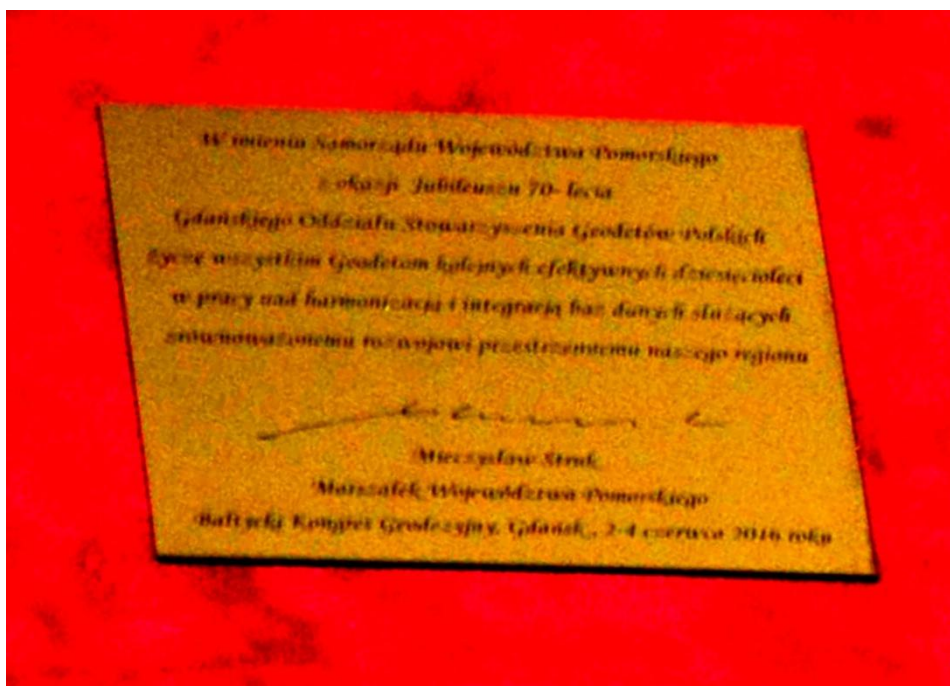 W imieniu Samorządu Województwa Pomorskiego
z okazji Jubileuszu 70- lecia
Gdańskiego Oddziału Stowarzyszenia Geodetów Polskich
życzę wszystkim Geodetom kolejnych efektywnych dziesięcioleci
w pracy nad harmonizacją i integracją baz danych służących
zrównoważonemu rozwojowi przestrzennemu naszego regionu
Mieczysław Struk
Marszałek Województwa Pomorskiego
Bałtycki Kongres Geodezyjny, Gdańsk, 2-4 czerwca 2016 roku